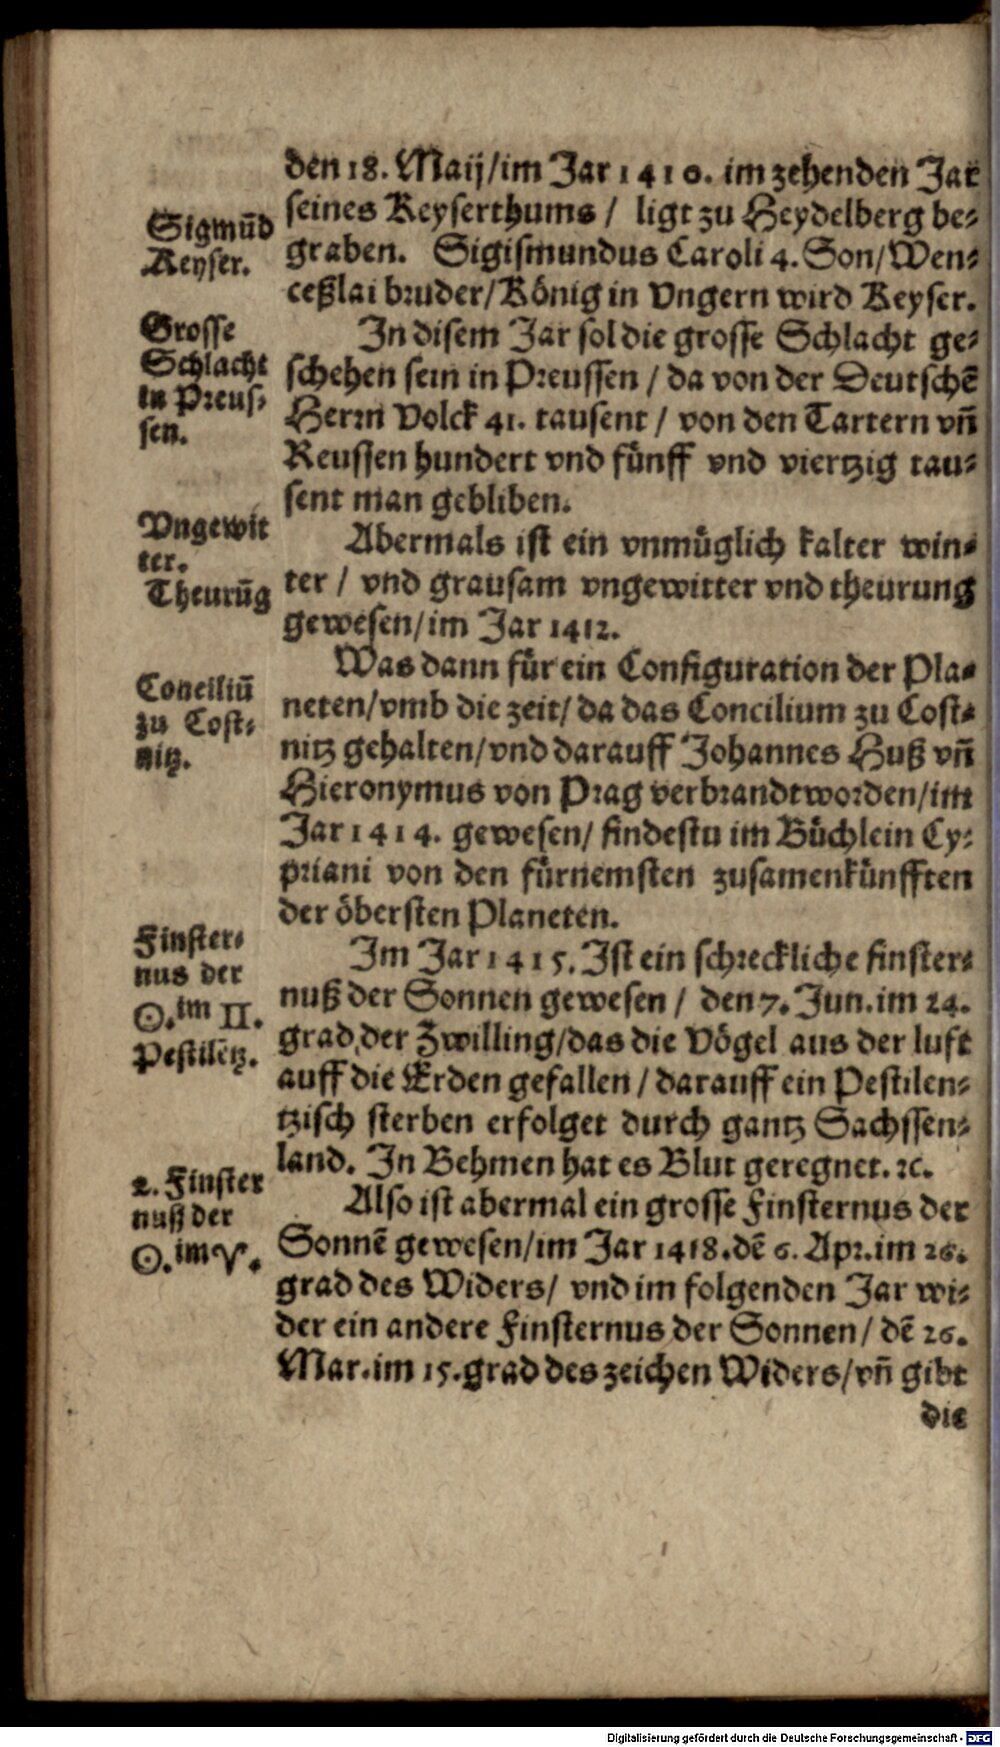 den 18. Maij/im Jar 1410. im zehenden Jar
seines Keyserthums / ligt zu Heydelberg be⸗
graben. Sigismundus Caroli 4. Son/Wen⸗
ceßlai bruder/König in Vngern wird Keyser.
Sigmūd
Keyser.
In disem Jar sol die grosse Schlacht ge⸗
schehen sein in Preussen / da von der Deutschē
Herrn Volck 41. tausent / von den Tartern vn̄
Reussen hundert vnd fünff vnd viertzig tau⸗
sent man gebliben.
Grosse
Schlacht
in Preus⸗
sen.
Abermals ist ein vnmüglich kalter win⸗
ter / vnd grausam vngewitter vnd theurung
gewesen/im Jar 1412.
Vngewit
ter.
Theurūg
Was dann für ein Configuration der Pla⸗
neten/vmb die zeit/da das Concilium zu Cost⸗
nitz gehalten/vnd darauff Johannes Huß vn̄
Hieronymus von Prag verbrandt worden/im
Jar 1414. gewesen/ findestu im Büchlein Cy⸗
priani von den fürnemsten zusamenkünfften
der öbersten Planeten.
Conciliū
zu Cost⸗
nitz.
Im Jar 1415. Ist ein schreckliche finster⸗
nuß der Sonnen gewesen / den 7. Jun. im 24.
grad der Zwilling/das die Vögel aus der luft
auff die Erden gefallen / darauff ein Pestilen⸗
tzisch sterben erfolget durch gantz Sachssen⸗
land. In Behmen hat es Blut geregnet. ꝛc.
Finster⸗
nus der
☉. im II.
Pestilētz.
Also ist abermal ein grosse Finsternus der
Sonnē gewesen/im Jar 1418. dē 6. Apr. im 26.
grad des Widers/ vnd im folgenden Jar wi⸗
der ein andere Finsternus der Sonnen / dē 26.
Mar. im 15. grad des zeichen Widers/vn̄ gibt
2. Finster
nuß der
☉. im ♈.
die
Digitalisierung gefördert durch die Deutsche Forschungsgemeinschaft - DFG